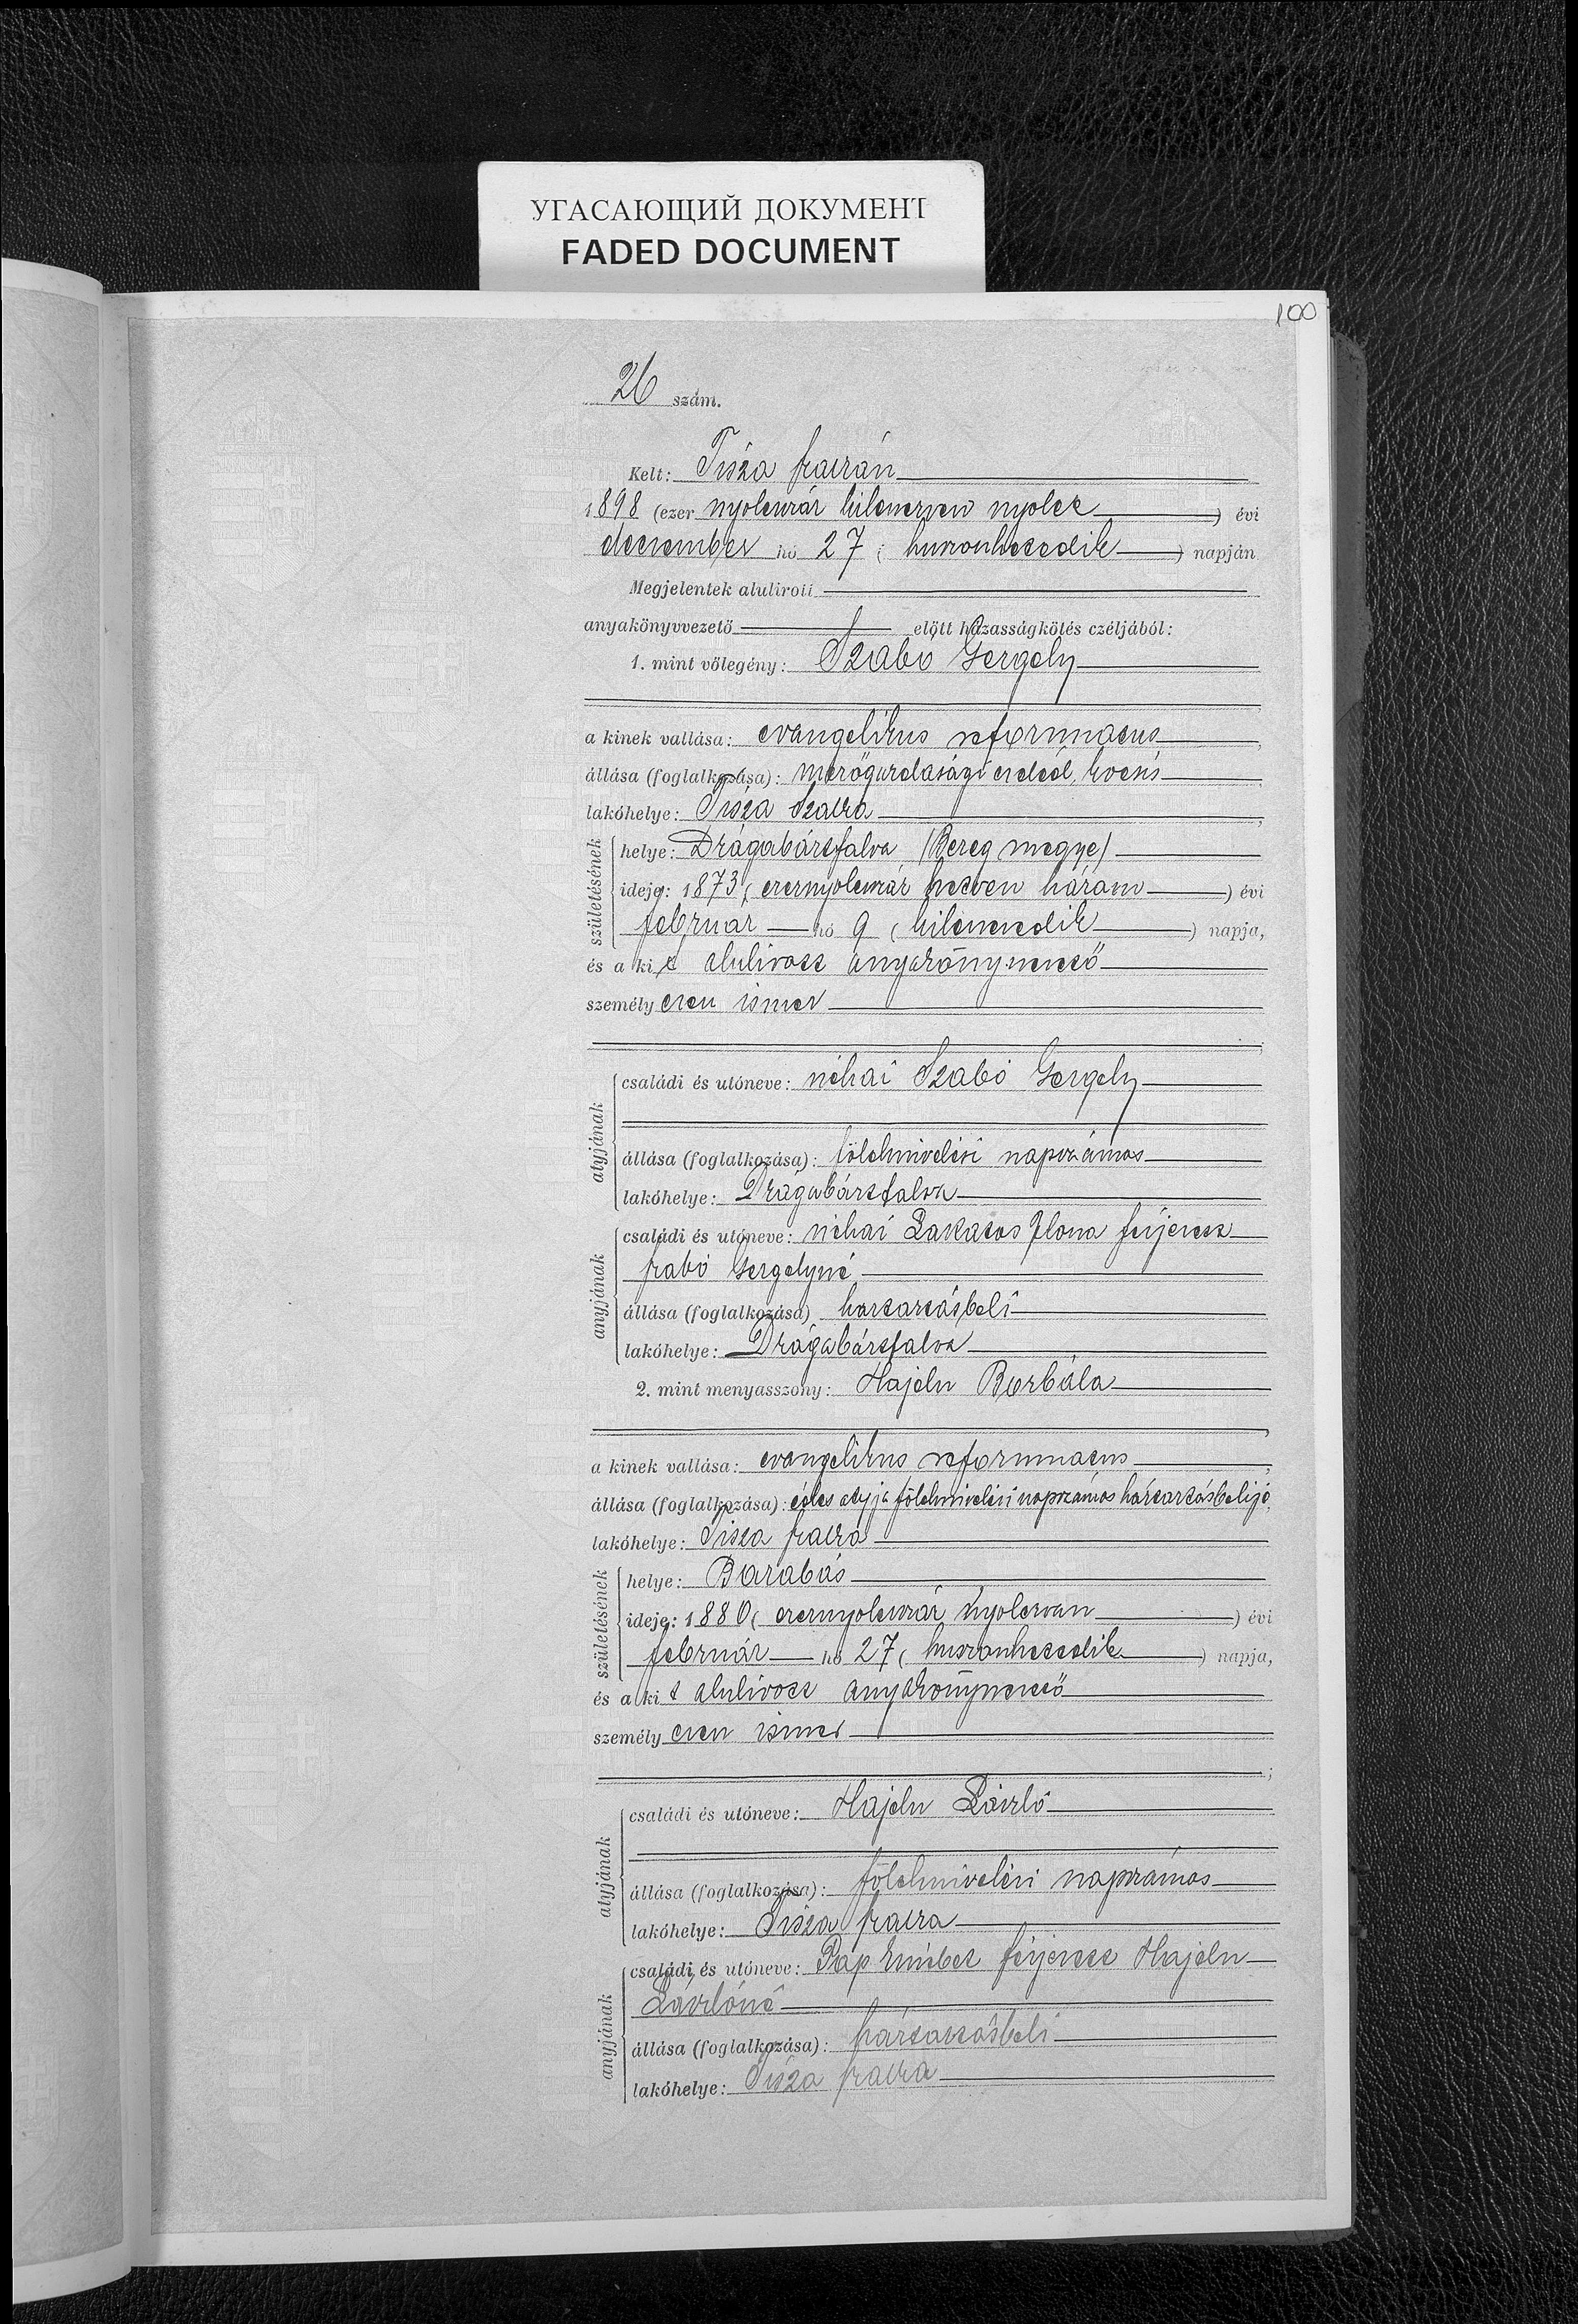 УГАСАЮЩИЙ ДОКУМЕНТ
FADED DOCUMENT
100
26 szám.
Kelt: Tisza szalkán
1898 (ezer nyolczáz kilenczven nyolcz) évi
deczember hó 27 (huszonhetedik) napján
Megjelentek alulirott
anyakönyvvezető előtt házasságkötés czéljából:
1. mint vőlegény: Szabó Gergely
a kinek vallása: evangelikus reformatus,
állása (foglalkozása): mezőgazdasági cseléd, kocsis
lakóhelye: Tisza Szalka,
születésének
helye: Drágabártfalva (Bereg megye)
ideje: 1873 (ezernyolczáz hetven három) évi
február hó 9 (kilenczedik) napja,
és a kit alulirott anyakönyvvezető
személyesen ismer
;
atyjának
családi és utóneve: néhai Szabó Gergely
állása (foglalkozása): földmivelési napszámos
lakóhelye: Drágabártfalva
anyjának
családi és utóneve: néhai Lakatos Ilona férjezett
szabó Gergelyné
állása (foglalkozása) háztartásbeli
lakóhelye: Drágabártfalva
2. mint menyasszony: Hajdu Borbála
,
a kinek vallása: evangelikus reformmatus,
állása (foglalkozása): édes atyja földmivelési napszámos háztartásbelije,
lakóhelye: Tisza szalka
születésének
helye: Barabás
ideje: 1880 (ezernyolczáz nyolczvan) évi
február hó 27 (huszonhetedik) napja,
és a kit alulirott anyakönyvvezető
személyesen ismer
;
atyjának
családi és utóneve: Hajdu László
állása (foglalkozása): földmivelési napszámos
lakóhelye: Tisza szalka
anyjának
családi és utóneve: Pap férjezett Hajdu
Lászlóné
állása (foglalkozása): háztartásbeli
lakóhelye: Tisza szalka